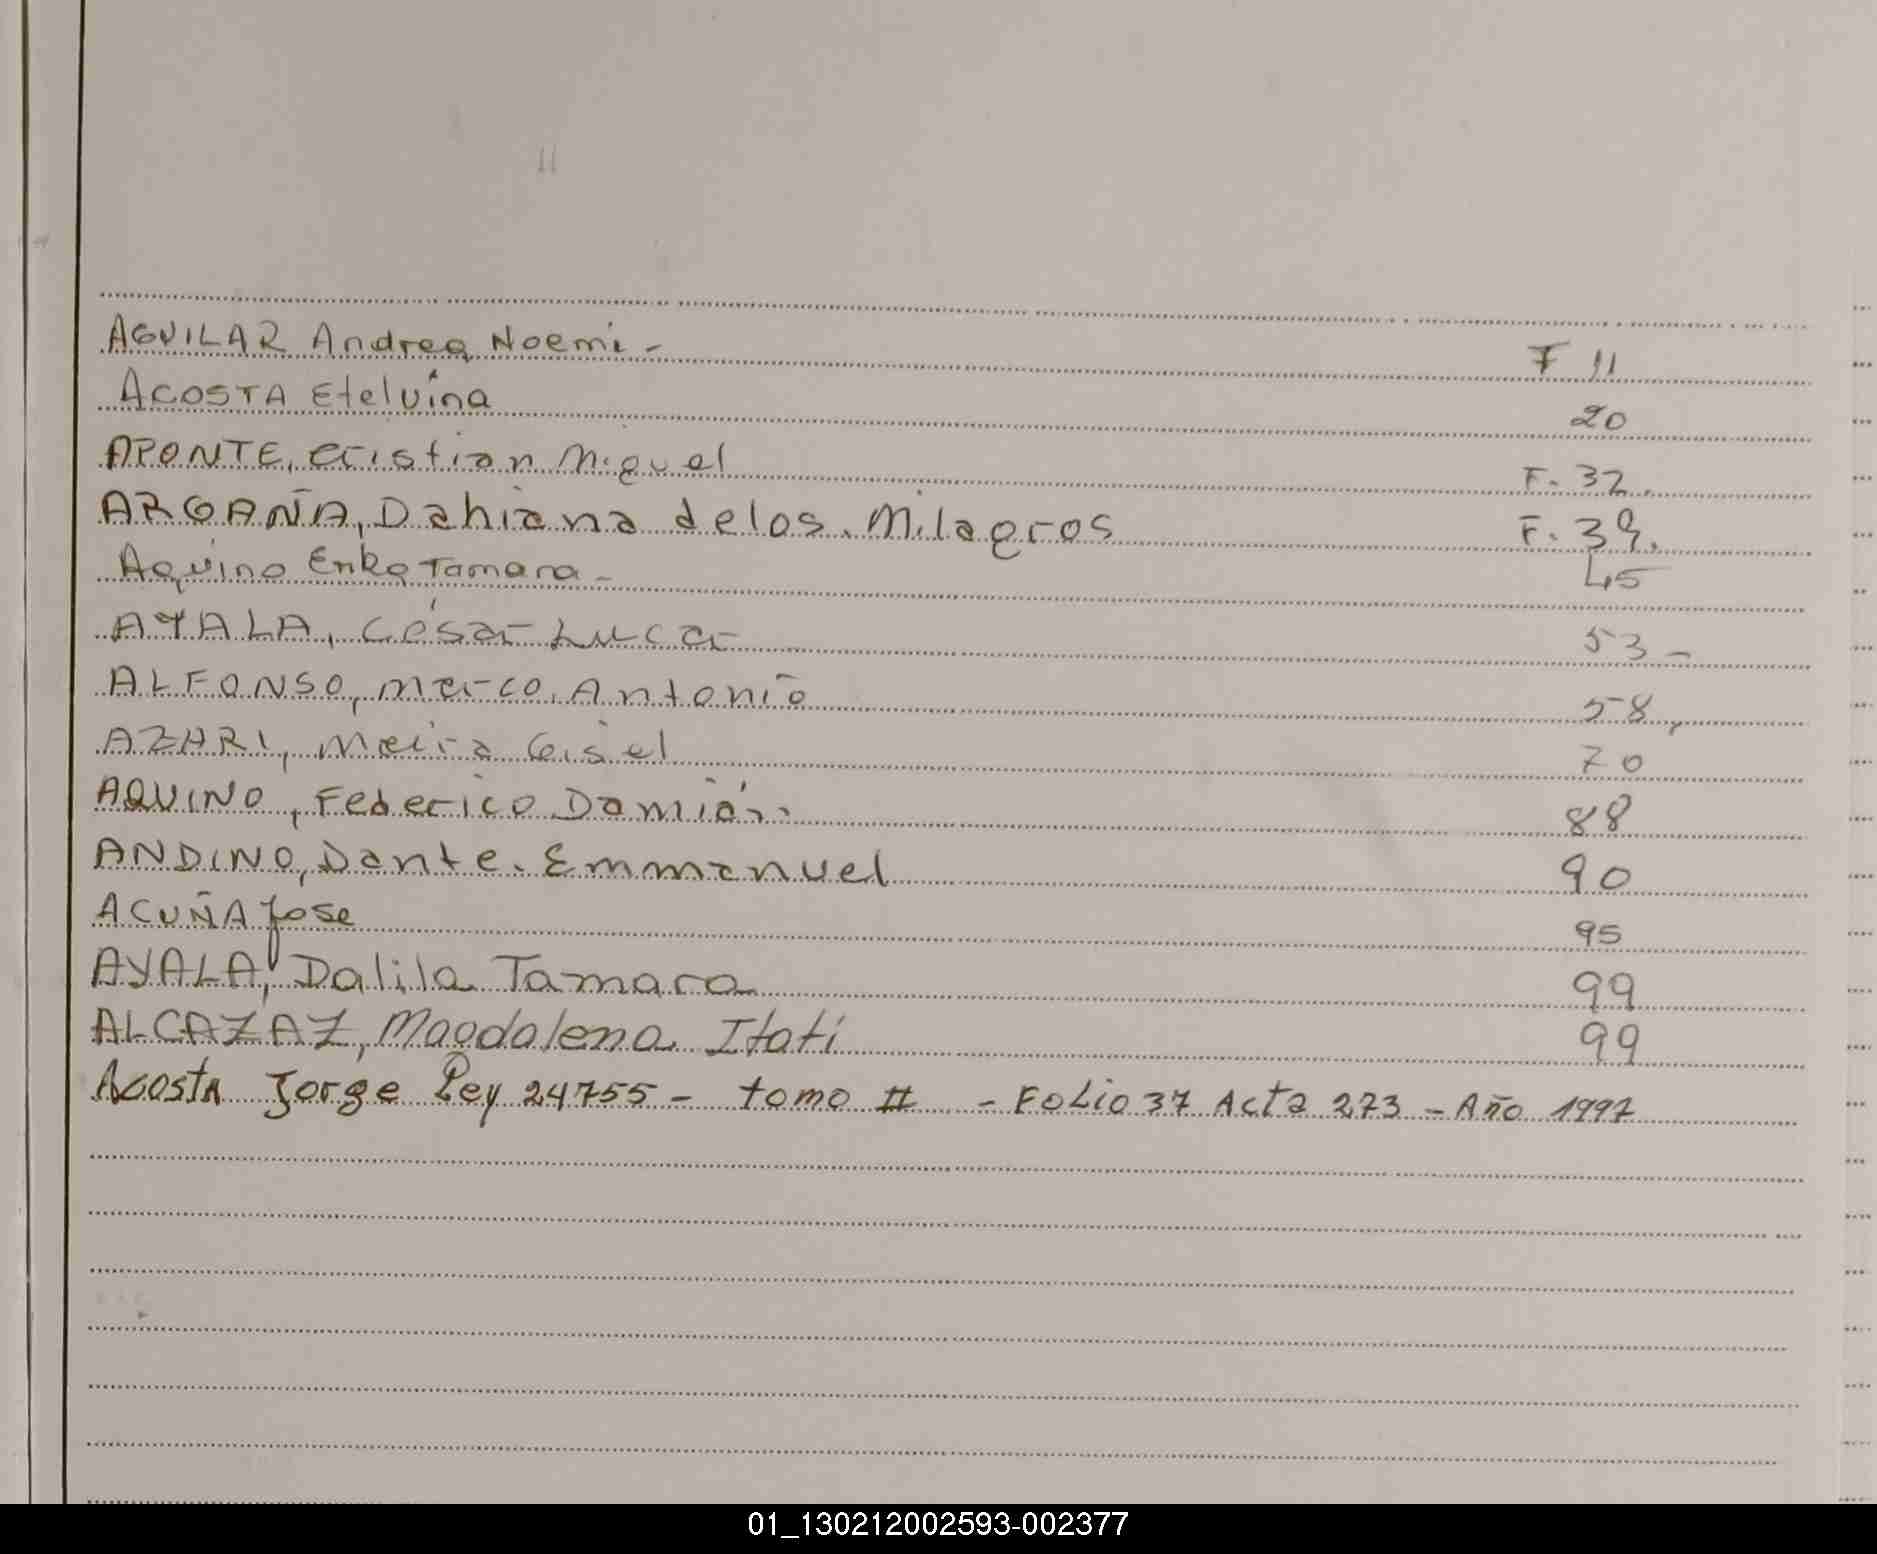 11
AGUILAR Andrea Noemi - F 11
ACOSTA Etelvina 20
APONTE, Cristian Miguel F. 32.
ARGAÑA, Dahiana delos Milagros F. 39.
Aquino Erika Tamara - 45
AYALA, César Lucar 53 -
ALFONSO, Marco Antonio 58,
AZHRI, Maira Gisel 70
AQUINO, Federico Damián. 88
ANDINO, Dante Emmanuel 90
ACUÑA Jose 95
AYALA, Dalila Tamara 99
ALCAZAZ, Magdalena Itati 99
Acosta Jorge Ley 24755 - tomo II - Folio 37 Acta 273 - Año 1997
01_130212002593-002377